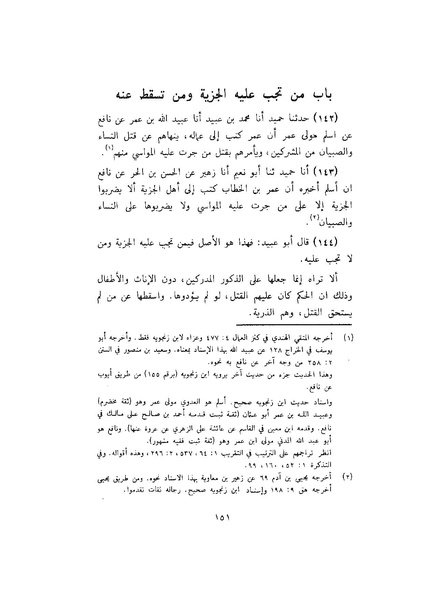 باب من تجب عليه الجزية ومن تسقط عنه
(١٤٢) حدثنا حميد أنا محمد بن عبيد أنا عبيد الله بن عمر عن نافع
عن اسلم مولى عمر أن عمر كتب إلى عماله، ينهاهم عن قتل النساء
والصبيان من المشركين، ويأمرهم بقتل من جرت عليه المواسي منهم(١).
(١٤٣) أنا حميد ثنا أبو نعيم أنا زهير عن الحسن بن الحر عن نافع
ان أسلم أخبره أن عمر بن الخطاب كتب إلى أهل الجزية ألا يضربوا
الجزية إلا على من جرت عليه المواسي ولا يضربوها على النساء
والصبيان(٢).
(١٤٤) قال أبو عبيد: فهذا هو الأصل فيمن تجب عليه الجزية ومن
لا تجب عليه.
ألا تراه إنما جعلها على الذكور المدركين، دون الإناث والأطفال
وذلك ان الحكم كان عليهم القتل، لو لم يؤدوها. واسقطها عن من لم
يستحق القتل، وهم الذرية.
(١) أخرجه المتقي الهندي في كنز العمال ٤: ٤٧٧ وعزاه لابن زنجويه فقط. وأخرجه أبو
يوسف في الخراج ١٢٨ عن عبيد الله بهذا الإسناد بمعناه. وسعيد بن منصور في السنن
٢: ٢٥٨ من وجه آخر عن نافع به نحوه.
وهذا الحديث جزء من حديث آخر يرويه ابن زنجويه (برقم ١٥٥) من طريق أيوب
عن نافع.
واسناد حديث ابن زنجويه صحيح. أسلم هو العدوي مولى عمر وهو (ثقة مخضرم)
وعبيد الله بن عمر أبو عثمان (ثقة ثبت قدمه أحمد بن صالح على مالك في
نافع. وقدمه ابن معين في القاسم عن عائشة على الزهري عن عروة عنها). ونافع هو
أبو عبد الله المدني مولى ابن عمر وهو (ثقة ثبت فقيه مشهور).
انظر تراجمهم على الترتيب في التقريب ١: ٦٤، ٥٣٧، ٢: ٢٩٦، وهذه أقواله. وفي
التذكرة ١: ٥٢، ١٦٠، ٩٩.
(٢) أخرجه يحيى بن آدم ٦٩ عن زهير بن معاوية بهذا الاسناد نحوه. ومن طريق يحيى
أخرجه هق ٩: ١٩٨ وإسناد ابن زنجويه صحيح. رجاله ثقات تقدموا.
١٥١